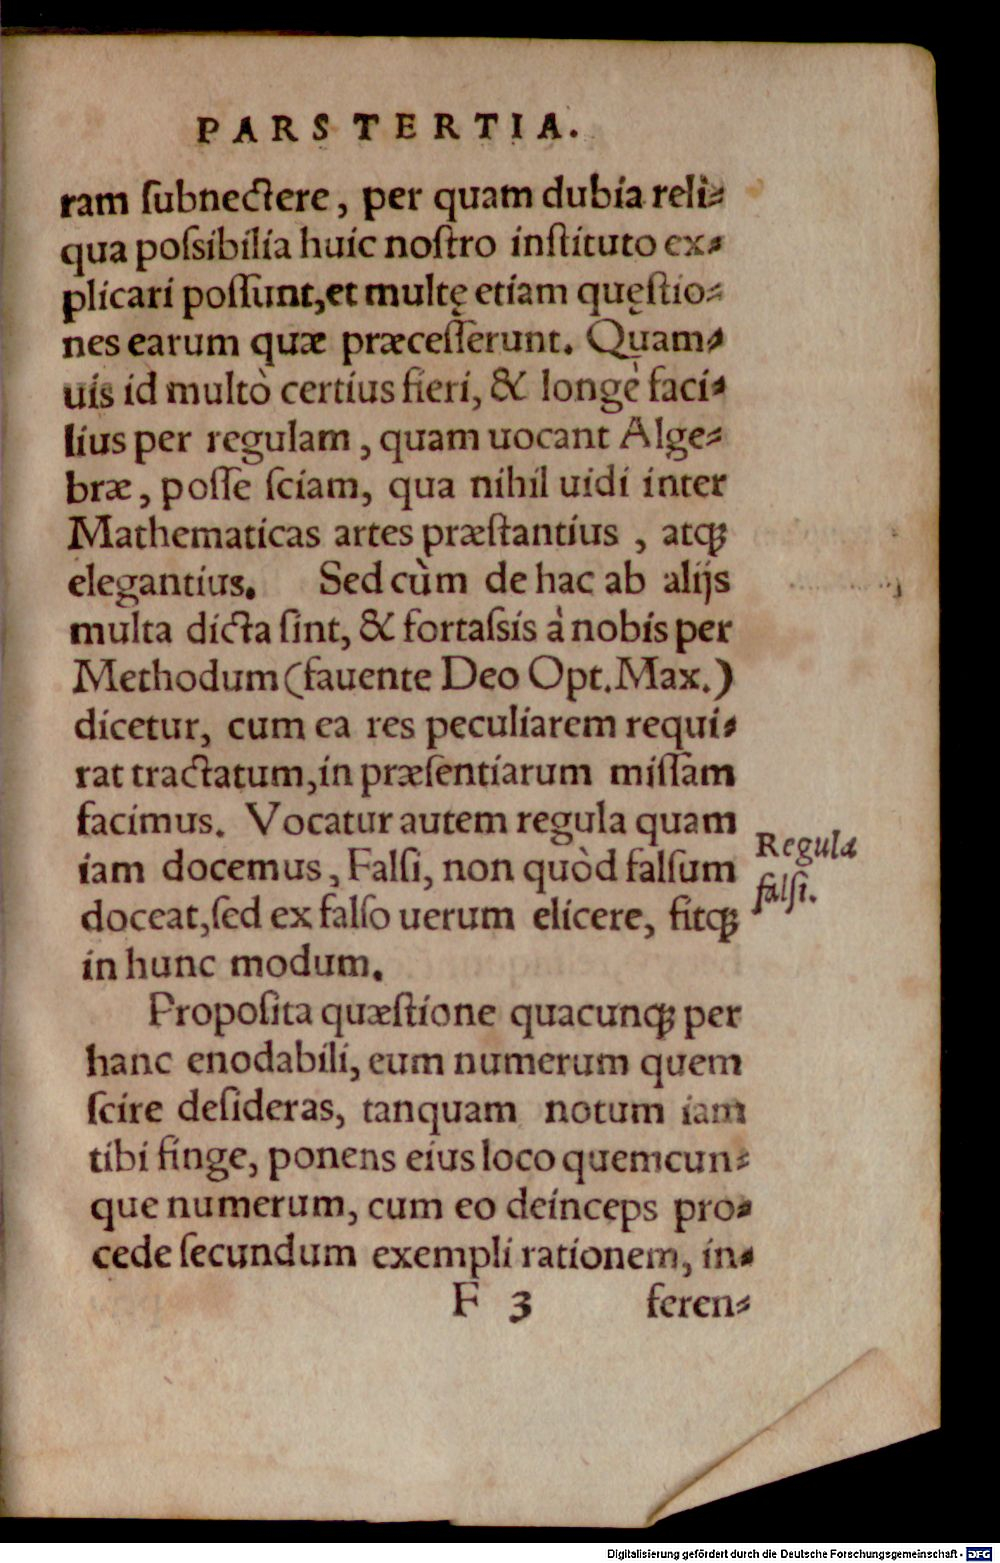 PARS TERTIA.
ram ſubnectere, per quam dubia reli⸗
qua poſsibilia huic noſtro inſtituto ex⸗
plicari poſſunt,et multę etiam quęſtio⸗
nes earum quæ præceſſerunt. Quam⸗
uis id multò certius fieri, & longè faci⸗
lius per regulam, quam uocant Alge⸗
bræ, poſſe ſciam, qua nihil uidi inter
Mathematicas artes præſtantius, atqꝫ
elegantius. Sed cùm de hac ab alijs
multa dicta ſint, & fortaſsis à nobis per
Methodum (fauente Deo Opt. Max.)
dicetur, cum ea res peculiarem requi⸗
rat tractatum, in præſentiarum miſſam
facimus. Vocatur autem regula quam
iam docemus, Falſi, non quòd falſum
doceat, ſed ex falſo uerum elicere, fitqꝫ
in hunc modum.
Regula
falſi.
Propoſita quæſtione quacunqꝫ per
hanc enodabili, eum numerum quem
ſcire deſideras, tanquam notum iam
tibi finge, ponens eius loco quemcun⸗
que numerum, cum eo deinceps pro⸗
cede ſecundum exempli rationem, in⸗
F 3 feren⸗
Digitalisierung gefördert durch die Deutsche Forschungsgemeinschaft - DFG